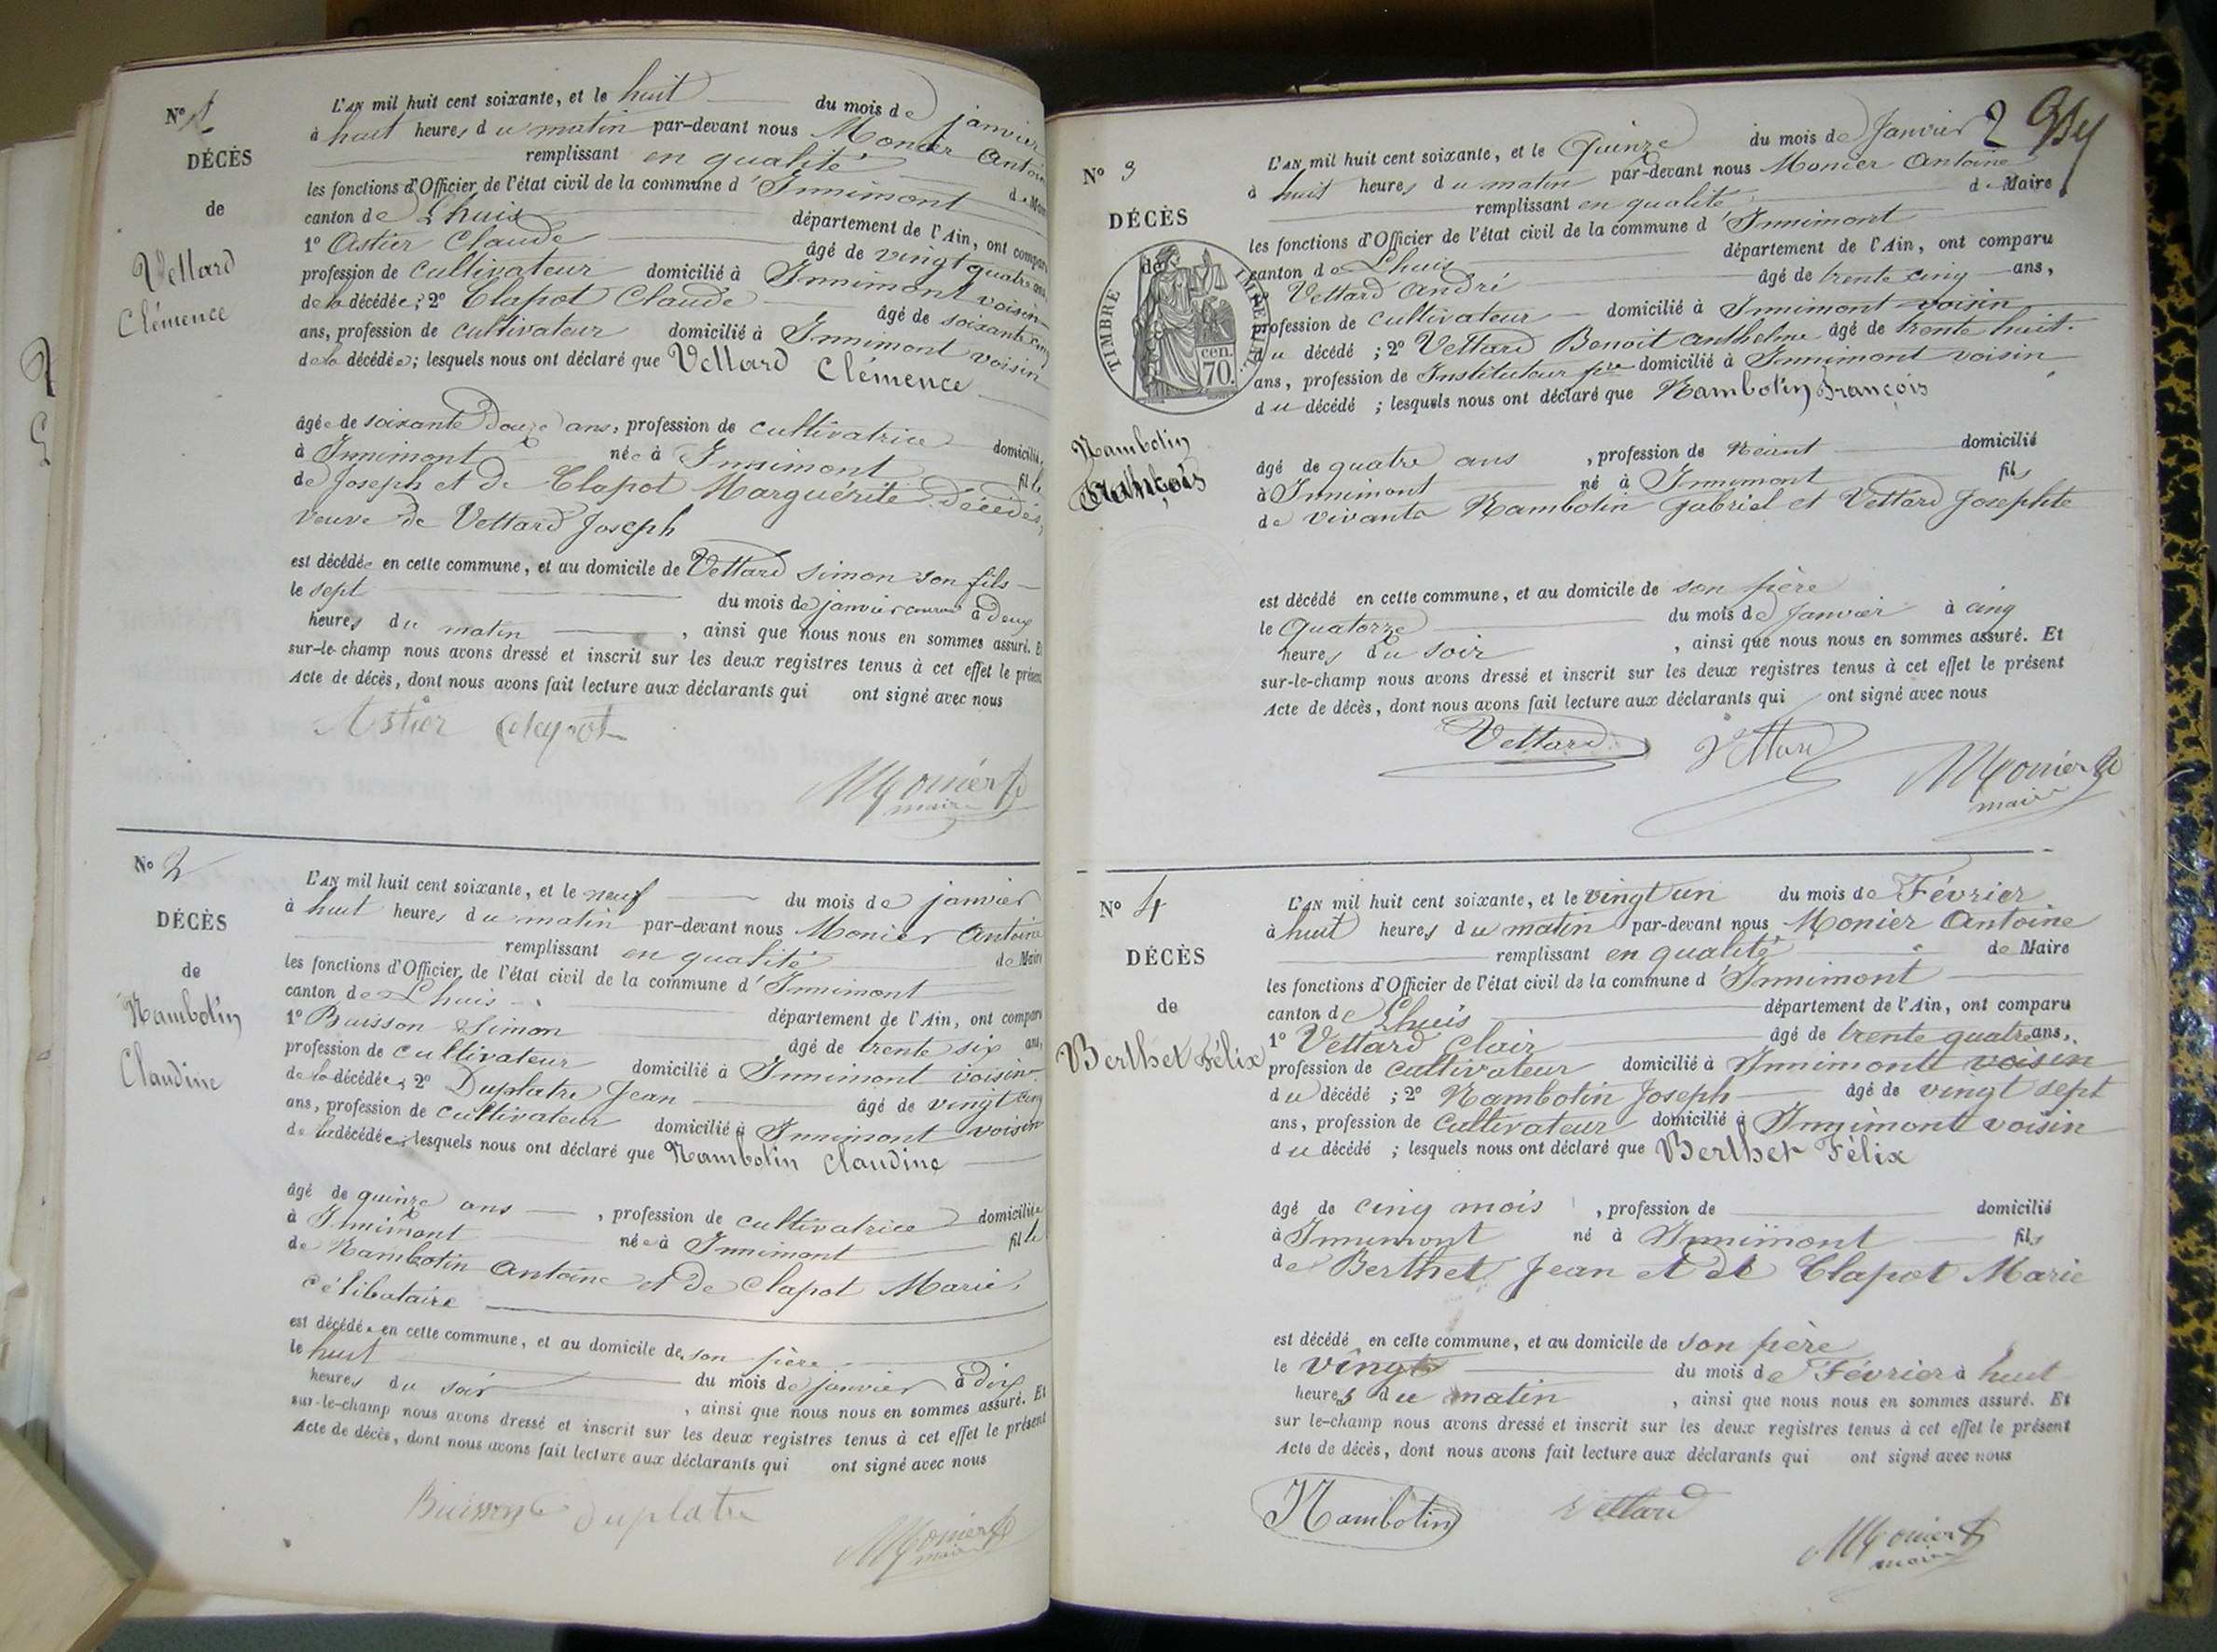 N° 1
DÉCÈS
de
Vettard
Clémence
L'AN mil huit cent soixante, et le huit du mois de janvier
à huit heures du matin par-devant nous Monier Antoine
remplissant en qualité de Maire
les fonctions d'Officier de l'état civil de la commune d'Innimont
canton de Lhuis département de l'Ain, ont comparu
1° Astier Claude âgé de vingt quatre ans,
profession de cultivateur domicilié à Innimont voisin
de la décédée; 2° Clapot Claude âgé de soixante cinq
ans, profession de cultivateur domicilié à Innimont voisin
de la décédée; lesquels nous ont déclaré que Vettard Clémence
âgée de soixante douze ans, profession de cultivatrice domiciliée
à Innimont née à Innimont fille
de Joseph et de Clapot Marguérite décédés,
veuve de Vettard Joseph
est décédée en cette commune, et au domicile de Vettard Simon son fils
le sept du mois de janvier courant à deux
heures du matin, ainsi que nous nous en sommes assuré. Et
sur-le-champ nous avons dressé et inscrit sur les deux registres tenus à cet effet le présent
Acte de décès, dont nous avons fait lecture aux déclarants qui ont signé avec nous
Astier Clapot
Monier
maire
N° 2
DÉCÈS
de
Nambotin
Claudine
L'AN mil huit cent soixante, et le neuf du mois de janvier
à huit heures du matin par-devant nous Monier Antoine
remplissant en qualité de Maire
les fonctions d'Officier de l'état civil de la commune d'Innimont
canton de Lhuis département de l'Ain, ont comparu
1° Buisson Simon âgé de trente six ans,
profession de cultivateur domicilié à Innimont voisin
de la décédée; 2° Duplatre Jean âgé de vingt cinq
ans, profession de cultivateur domicilié à Innimont voisin
de la décédée; lesquels nous ont déclaré que Nambotin Claudine
âgé de quinze ans, profession de cultivatrice domiciliée
à Innimont née à Innimont fille
de Nambotin Antoine et de Clapot Marie,
célibataire
est décédée en cette commune, et au domicile de son père
le huit du mois de janvier à dix
heures du soir, ainsi que nous nous en sommes assuré. Et
sur-le-champ nous avons dressé et inscrit sur les deux registres tenus à cet effet le présent
Acte de décès, dont nous avons fait lecture aux déclarants qui ont signé avec nous
Buisson Duplatre
Monier
maire
2
N° 3
DÉCÈS
de
TIMBRE IMPÉRIAL
70 cen.
Nambotin
François
L'AN mil huit cent soixante, et le Quinze du mois de Janvier
à huit heures du matin par-devant nous Monier Antoine
remplissant en qualité de Maire
les fonctions d'Officier de l'état civil de la commune d'Innimont
canton de Lhuis département de l'Ain, ont comparu
1° Vettard André âgé de trente cinq ans,
profession de cultivateur domicilié à Innimont voisin
du décédé; 2° Vettard Benoit Anthelme âgé de trente huit
ans, profession de Instituteur pre domicilié à Innimont voisin
du décédé; lesquels nous ont déclaré que Nambotin François
âgé de quatre ans, profession de Néant domicilié
à Innimont né à Innimont fils
de vivants Nambotin Gabriel et Vettard Josephte
est décédé en cette commune, et au domicile de son père
le Quatorze du mois de Janvier à cinq
heures du soir, ainsi que nous nous en sommes assuré. Et
sur-le-champ nous avons dressé et inscrit sur les deux registres tenus à cet effet le présent
Acte de décès, dont nous avons fait lecture aux déclarants qui ont signé avec nous
Vettard Vettard
Monier
maire
N° 4
DÉCÈS
de
Berthet Félix
L'AN mil huit cent soixante, et le vingt un du mois de Février
à huit heures du matin par-devant nous Monier Antoine
remplissant en qualité de Maire
les fonctions d'Officier de l'état civil de la commune d'Innimont
canton de Lhuis département de l'Ain, ont comparu
1° Vettard Clair âgé de trente quatre ans,
profession de cultivateur domicilié à Innimont voisin
du décédé; 2° Nambotin Joseph âgé de vingt sept
ans, profession de cultivateur domicilié à Innimont voisin
du décédé; lesquels nous ont déclaré que Berthet Félix
âgé de cinq mois, profession de domicilié
à Innimont né à Innimont fils
de Berthet Jean et de Clapot Marie
est décédé en cette commune, et au domicile de son père
le vingt du mois de Février à huit
heures du matin, ainsi que nous nous en sommes assuré. Et
sur le-champ nous avons dressé et inscrit sur les deux registres tenus à cet effet le présent
Acte de décès, dont nous avons fait lecture aux déclarants qui ont signé avec nous
Nambotin Vettard
Monier
maire